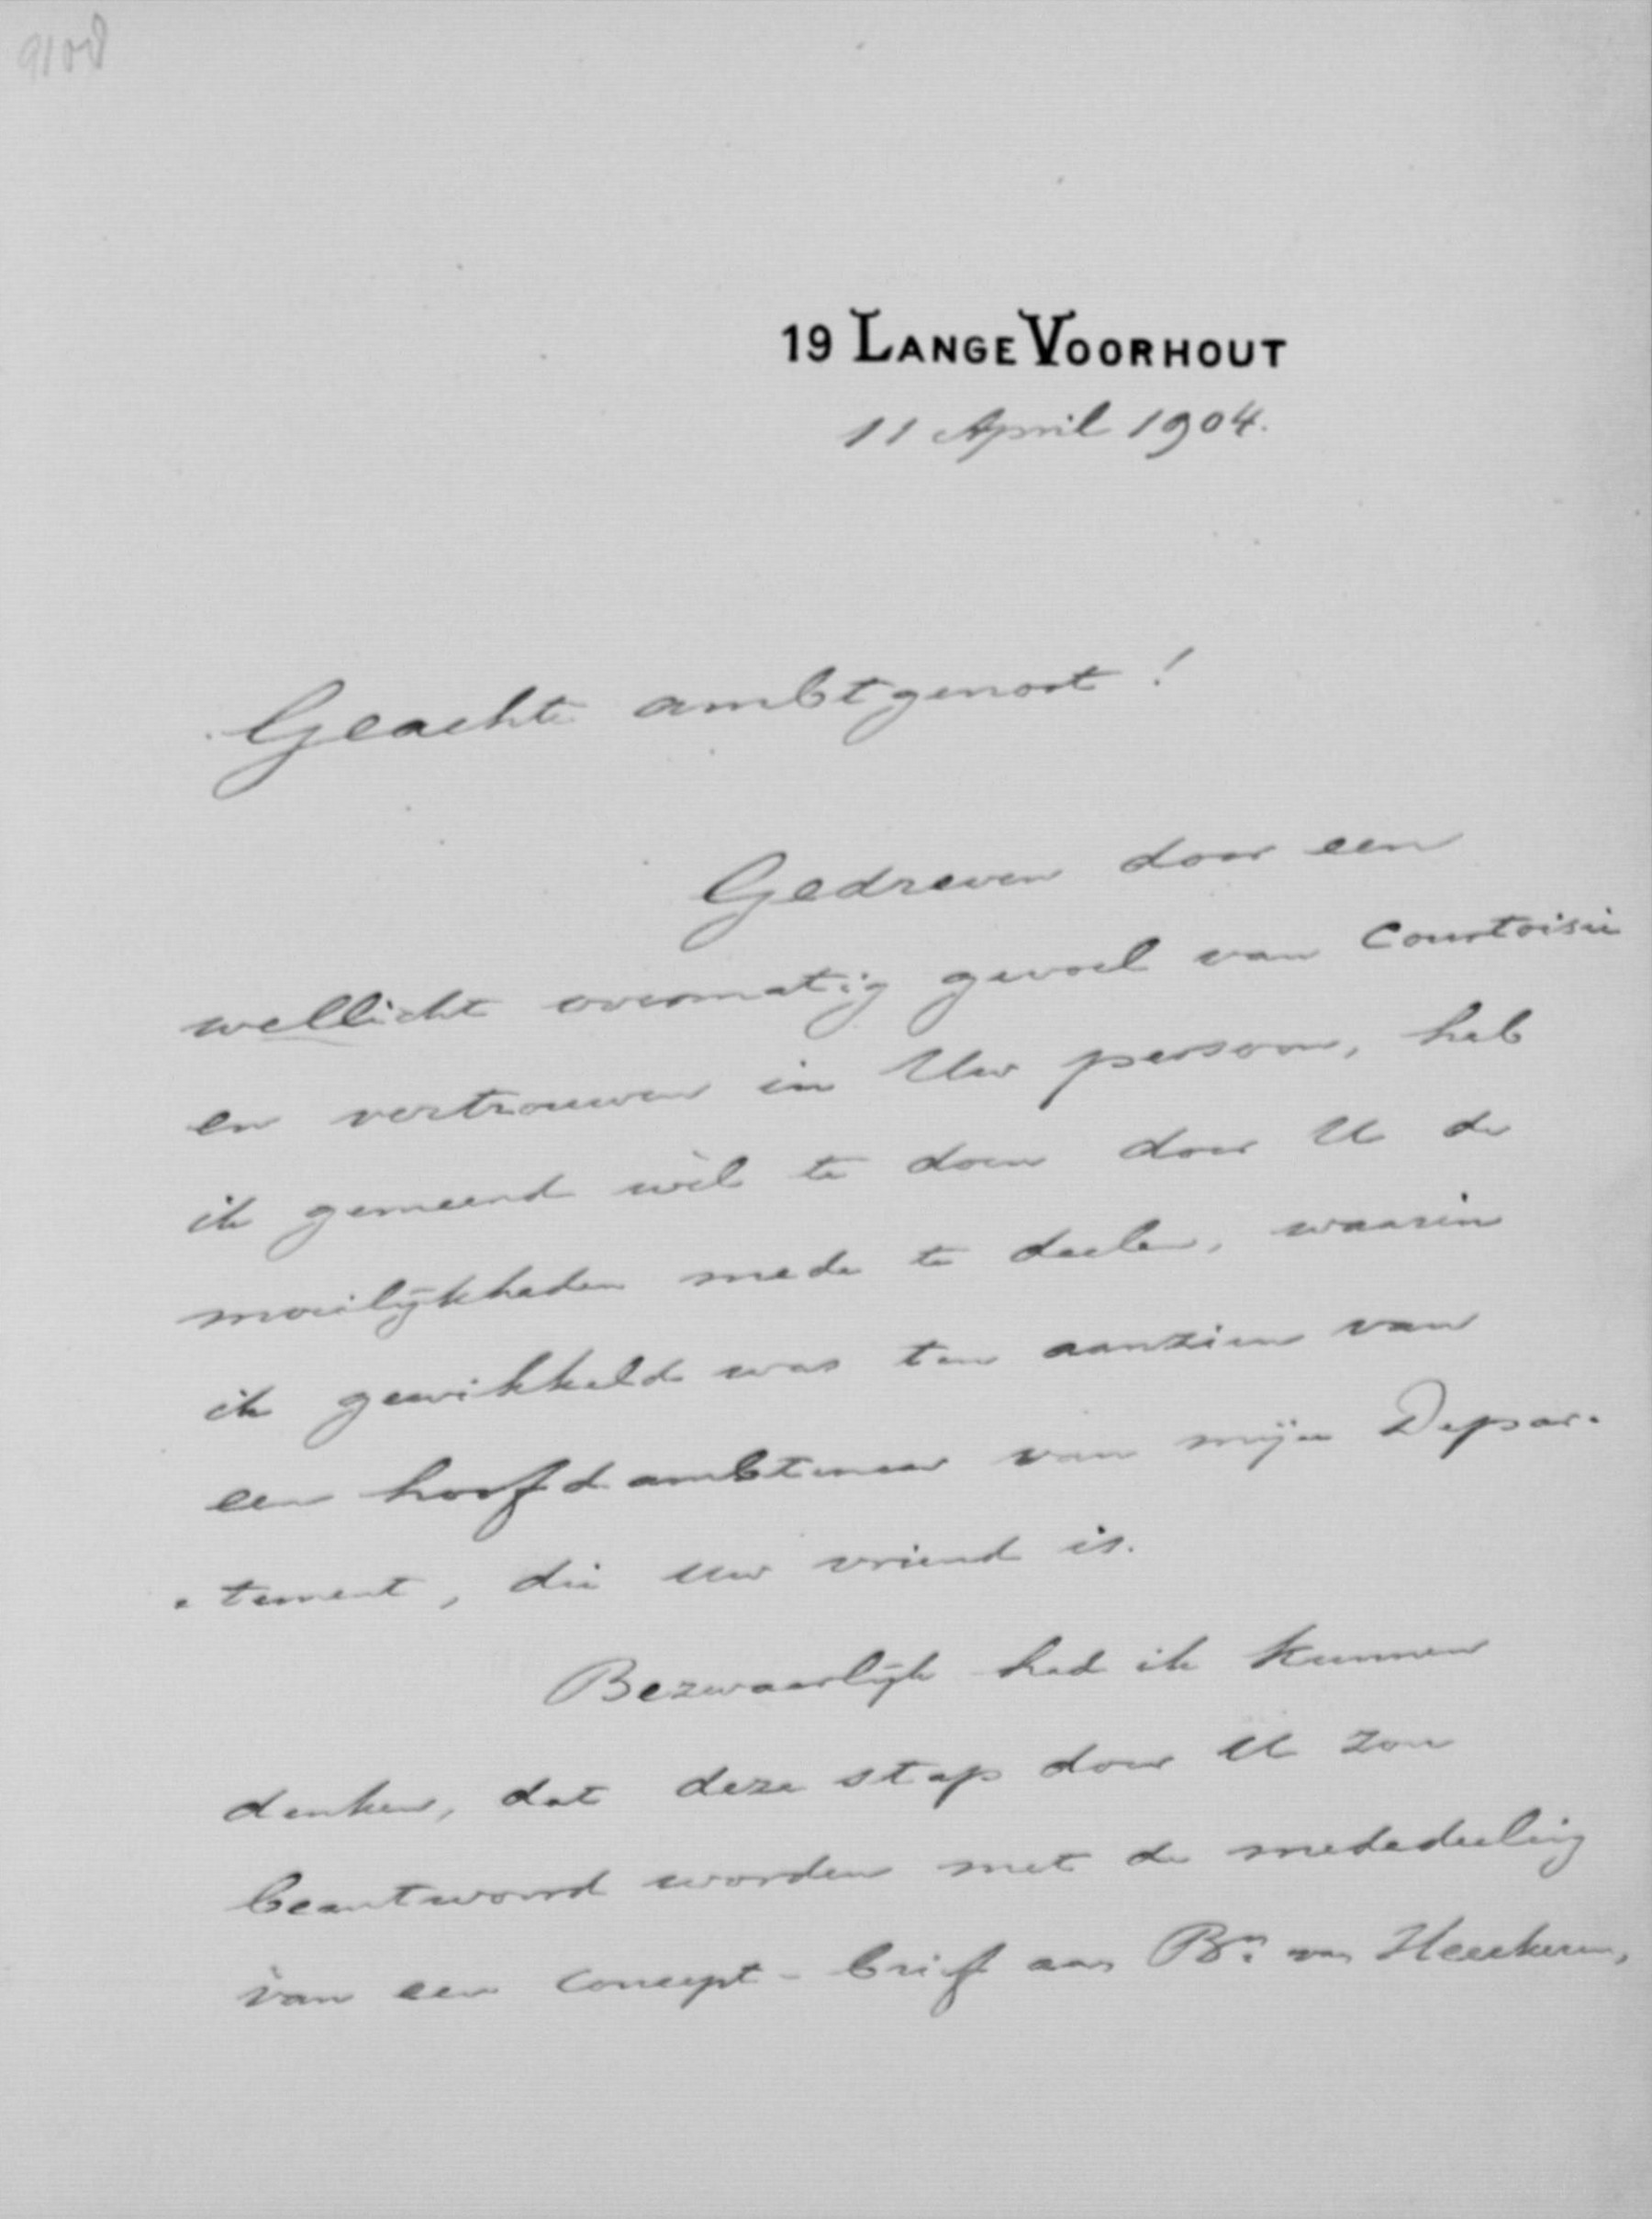 9108
19 LANGE VOORHOUT
11 April 1904.
Geachte ambtgenoot!
Gedreven door een
wellicht overmatig gevoel van Courtoisie
en vertrouwen in Uw persoon, heb
ik gemeend wèl te doen door U de
moeilijkheden mede te deelen, waarin
ik gewikkeld was ten aanzien van
een hoofdambtenaar van mijn Depar-
-tement, die Uw vriend is.
Bezwaarlijk had ik kunnen
denken, dat deze stap door U zou
beantwoord worden met de mededeeling
van een Concept-brief aan Bn. van Heeckeren,